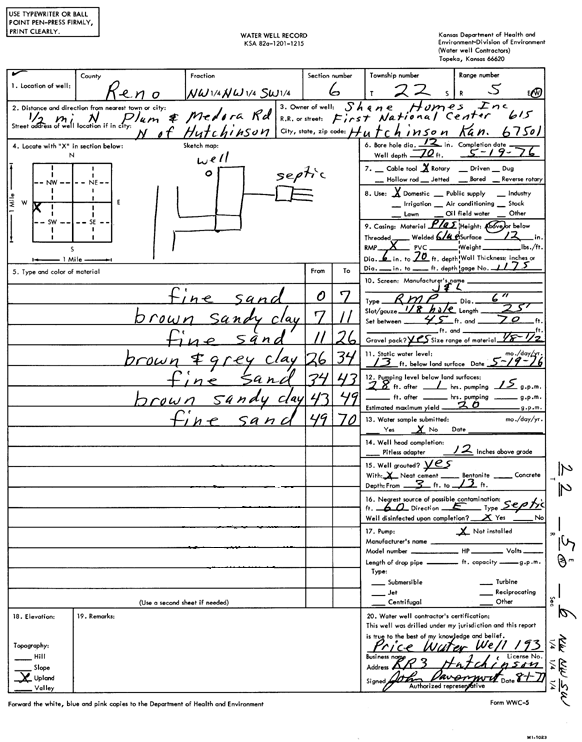 USE TYPEWRITER OR BALL
POINT PEN-PRESS FIRMLY,
PRINT CLEARLY.
WATER WELL RECORD
KSA 82a-1201-1215
Kansas Department of Health and
Environment-Division of Environment
(Water well Contractors)
Topeka, Kansas 66620
1. Location of well:
County
Reno
Fraction
NW 1/4 NW 1/4 SW 1/4
Section number
6
Township number
T 22 S
Range number
R 5 E W
2. Distance and direction from nearest town or city:
1/2 mi N Plum & Medora Rd
Street address of well location if in city:
N of Hutchinson
3. Owner of well: Shane Homes Inc
R.R. or street: First National Center 615
City, state, zip code: Hutchinson Kan. 67501
4. Locate with "X" in section below:
N
NW NE
W X E
SW SE
S
1 Mile
1 Mile
Sketch map:
well
septic
6. Bore hole dia. 12 in. Completion date
Well depth 70 ft. 5-19-76
7. Cable tool X Rotary Driven Dug
Hollow rod Jetted Bored Reverse rotary
8. Use: X Domestic Public supply Industry
Irrigation Air conditioning Stock
Lawn Oil field water Other
9. Casing: Material Plas Height: Above or below
Threaded Welded Glue Surface 12 in.
RMP X PVC Weight lbs./ft.
Dia. 6 in. to 70 ft. depth Wall Thickness: inches or
Dia. in. to ft. depth gage No. 1175
5. Type and color of material
From To
fine sand 0 7
brown sandy clay 7 11
fine sand 11 26
brown & grey clay 26 34
fine sand 34 43
brown sandy clay 43 49
fine sand 49 70
(Use a second sheet if needed)
10. Screen: Manufacturer's name
J & L
Type RMP Dia. 6"
Slot/gauze 1/8 hole Length 25'
Set between 45 ft. and 70 ft.
ft. and ft.
Gravel pack? yes Size range of material 1/8-1/2
11. Static water level: mo./day/yr.
13 ft. below land surface Date 5-19-76
12. Pumping level below land surfaces:
28 ft. after 1 hrs. pumping 15 g.p.m.
ft. after hrs. pumping g.p.m.
Estimated maximum yield 20 g.p.m.
13. Water sample submitted: mo./day/yr.
Yes X No Date
14. Well head completion:
Pitless adapter 12 Inches above grade
15. Well grouted? yes
With: X Neat cement Bentonite Concrete
Depth: From 3 ft. to 13 ft.
16. Nearest source of possible contamination:
ft. 60 Direction E Type septic
Well disinfected upon completion? X Yes No
17. Pump: X Not installed
Manufacturer's name
Model number HP Volts
Length of drop pipe ft. capacity g.p.m.
Type:
Submersible Turbine
Jet Reciprocating
Centrifugal Other
18. Elevation:
Topography:
Hill
Slope
X Upland
Valley
19. Remarks:
20. Water well contractor's certification:
This well was drilled under my jurisdiction and this report
is true to the best of my knowledge and belief.
Price Water Well 193
Business name License No.
Address RR3 Hutchinson
Signed John Davenport Date
Authorized representative
Forward the white, blue and pink copies to the Department of Health and Environment
Form WWC-5
T 22 R 5 E W Sec 6 NW 1/4 NW 1/4 SW 1/4